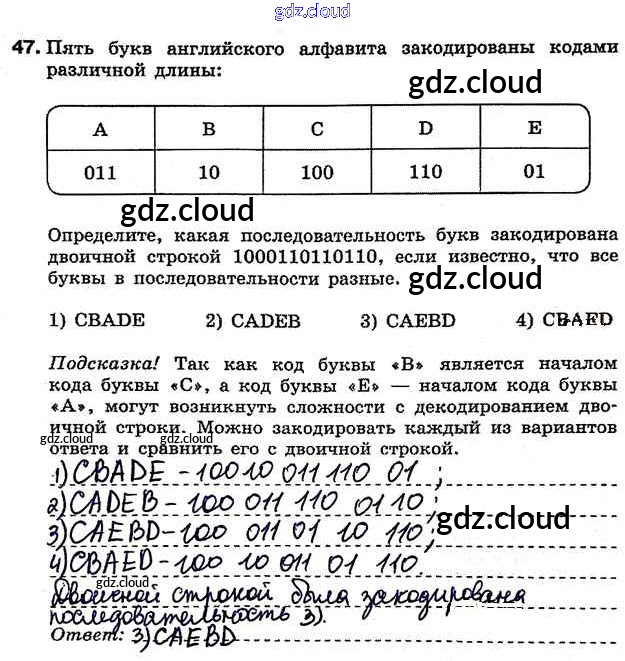 gdz.cloud
47. Пять букв английского алфавита закодированы кодами
различной длины:
gdz.cloud
A B C D E
011 10 100 110 01
gdz.cloud
Определите, какая последовательность букв закодирована
двоичной строкой 1000110110110, если известно, что все
буквы в последовательности разные.
gdz.cloud
1) CBADE 2) CADEB 3) CAEBD 4) CBAED
Подсказка! Так как код буквы «B» является началом
кода буквы «C», а код буквы «E» — началом кода буквы
«A», могут возникнуть сложности с декодированием дво-
ичной строки. Можно закодировать каждый из вариантов
gdz.cloud gdz.cloud
ответа и сравнить его с двоичной строкой.
1) CBADE - 100 10 011 110 01;
2) CADEB - 100 011 110 01 10;
3) CAEBD - 100 011 01 10 110;
gdz.cloud
4) CBAED - 100 10 011 01 110.
gdz.cloud
Двоичной строкой была закодирована
последовательность 3).
Ответ: 3) CAEBD
gdz.cloud